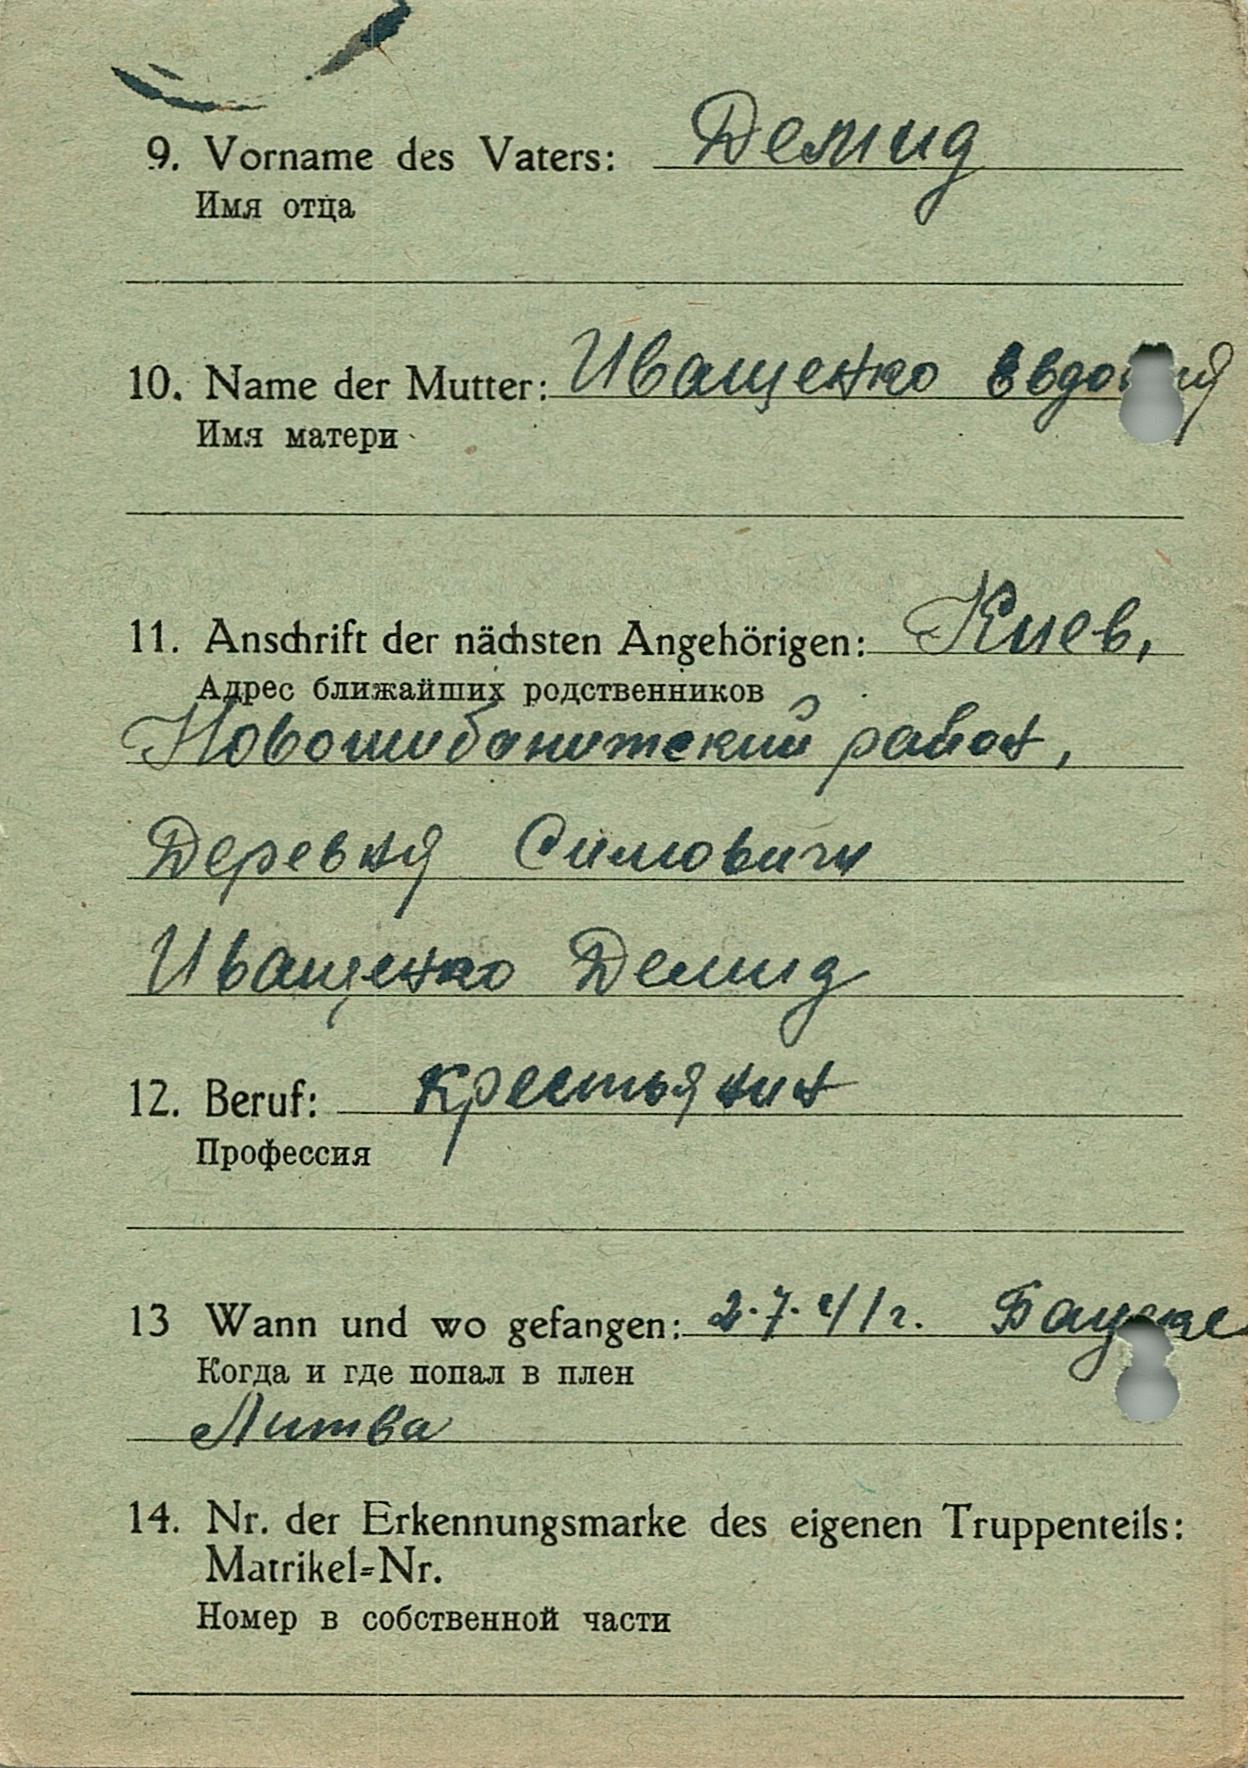 9. Vorname des Vaters: Демид
Имя отца
10. Name der Mutter: Иващенко
Имя матери
11. Anschrift der nächsten Angehörigen: Киев,
Адрес ближайших родственников
район,
Деревня Симовичи
Иващенко Демид
12. Beruf: крестьянин
Профессия
13 Wann und wo gefangen: 2.7.41г.
Когда и где попал в плен
Литва
14. Nr. der Erkennungsmarke des eigenen Truppenteils:
Matrikel=Nr.
Номер в собственной части